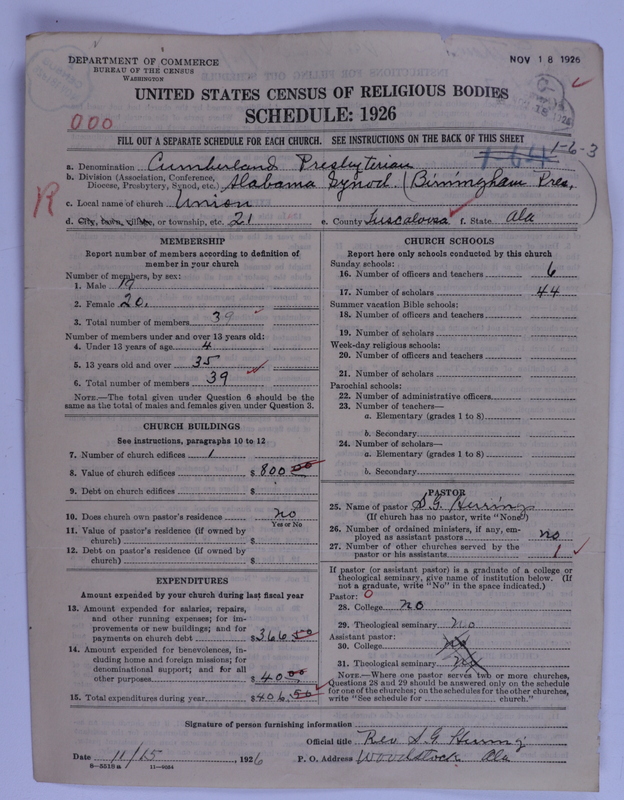 DEPARTMENT OF COMMERCE
BUREAU OF THE CENSUS
WASHINGTON
NOV 18 1926
UNITED STATES CENSUS OF RELIGIOUS BODIES
SCHEDULE: 1926
000
FILL OUT A SEPARATE SCHEDULE FOR EACH CHURCH. SEE INSTRUCTIONS ON THE BACK OF THIS SHEET
1-64 1-6-3
a. Denomination Cumberland Presbyterian
b. Division (Association, Conference, Diocese, Presbytery, Synod, etc.) Alabama Synod (Birmingham Pres.
R
c. Local name of church Union
d. City, town, village, or township, etc. 21 e. County Tuscaloosa f. State Ala
MEMBERSHIP
Report number of members according to definition of
member in your church
Number of members, by sex:
1. Male 19
2. Female 20.
3. Total number of members 39
Number of members under and over 13 years old:
4. Under 13 years of age 4
5. 13 years old and over 35
6. Total number of members 39
NOTE.—The total given under Question 6 should be the
same as the total of males and females given under Question 3.
CHURCH BUILDINGS
See instructions, paragraphs 10 to 12
7. Number of church edifices 1
8. Value of church edifices $ 800 00
9. Debt on church edifices $
10. Does church own pastor's residence no
Yes or No
11. Value of pastor's residence (if owned by
church) $
12. Debt on pastor's residence (if owned by
church) $
EXPENDITURES
Amount expended by your church during last fiscal year
13. Amount expended for salaries, repairs,
and other running expenses; for im-
provements or new buildings; and for
payments on church debt $ 366 50
14. Amount expended for benevolences, in-
cluding home and foreign missions; for
denominational support; and for all
other purposes $ 40 00
15. Total expenditures during year $ 406.50
CHURCH SCHOOLS
Report here only schools conducted by this church
Sunday schools:
16. Number of officers and teachers 6
17. Number of scholars 44
Summer vacation Bible schools:
18. Number of officers and teachers
19. Number of scholars
Week-day religious schools:
20. Number of officers and teachers
21. Number of scholars
Parochial schools:
22. Number of administrative officers
23. Number of teachers—
a. Elementary (grades 1 to 8)
b. Secondary
24. Number of scholars—
a. Elementary (grades 1 to 8)
b. Secondary
PASTOR
25. Name of pastor S.G. Herring
(If church has no pastor, write "None")
26. Number of ordained ministers, if any, em-
ployed as assistant pastors no
27. Number of other churches served by the
pastor or his assistants 1
If pastor (or assistant pastor) is a graduate of a college or
theological seminary, give name of institution below. (If
not a graduate, write "No" in the space indicated.)
Pastor: 0
28. College no
29. Theological seminary no
Assistant pastor:
30. College no
31. Theological seminary no
NOTE.—Where one pastor serves two or more churches,
Questions 28 and 29 should be answered only on the schedule
for one of the churches; on the schedules for the other churches,
write "See schedule for church."
Signature of person furnishing information
Official title Rev S.G. Herring
Date 11/15, 1926 P. O. Address Woodstock Ala
8—5518a 11—9034